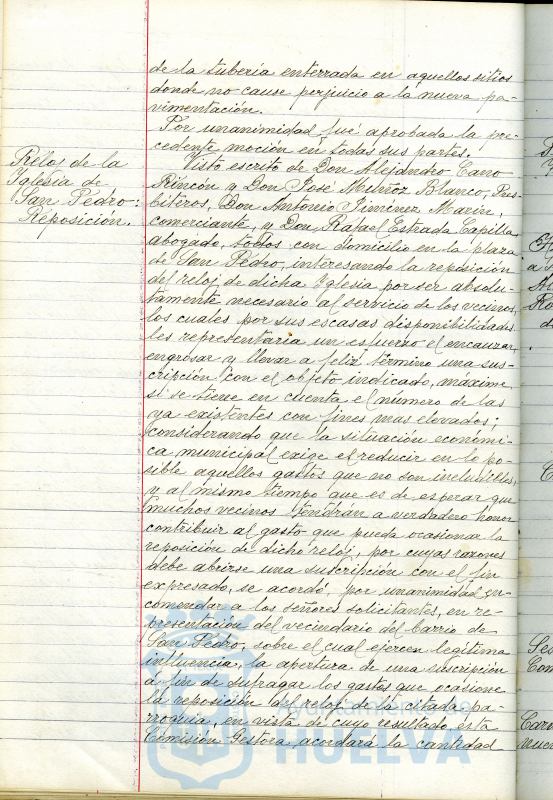 de la tubería enterrada en aquellos sitios
donde no cause perjuicio a la nueva pa-
vimentación.
Por unanimidad fué aprobada la pre-
cedente moción en todas sus partes.
Reloj de la
Iglesia de
San Pedro:
Reposición.
Visto escrito de Don Alejandro Caro
Rincón y Don José Muñoz Blanco, Pres-
bíteros, Don Antonio Jiménez Marín,
comerciante, y Don Rafael Estrada Capilla
abogado, todos con domicilio en la plaza
de San Pedro, interesando la reposición
del reloj de dicha Iglesia por ser absolu-
tamente necesario al servicio de los vecinos,
los cuales por sus escasas disponibilidades
les representaría un esfuerzo el encauzar,
engrosar y llevar a feliz término una sus-
cripción con el objeto indicado, máxime
si se tiene en cuenta el número de las
ya existentes con fines mas elevados;
considerando que la situación económi-
ca municipal exige el reducir en lo po-
sible aquellos gastos que no son ineludibles,
y al mismo tiempo que es de esperar que
muchos vecinos tendrán a verdadero honor
contribuir al gasto que pueda ocasionar la
reposición de dicho reloj, por cuyas razones
debe abrirse una suscripción con el fin
expresado, se acordó, por unanimidad en-
comendar a los señores solicitantes, en re-
presentación del vecindario del barrio de
San Pedro, sobre el cual ejercen legítima
influencia, la apertura de una suscripción
a fin de sufragar los gastos que ocasione
la reposición del reloj de la citada pa-
rroquia, en vista de cuyo resultado esta
Comisión Gestora acordará la cantidad
HUELVA